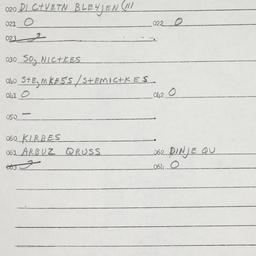 020 DICTVETN BLEYJEN (///
021 O 022 O
023
030 SO2 NICTKES
040 STEMKESS / STEMICTKES
041 O 042 O
050 —
060 KIRBES
061 ARBUZ QRUSS 062 DINJE QU
063 064 O